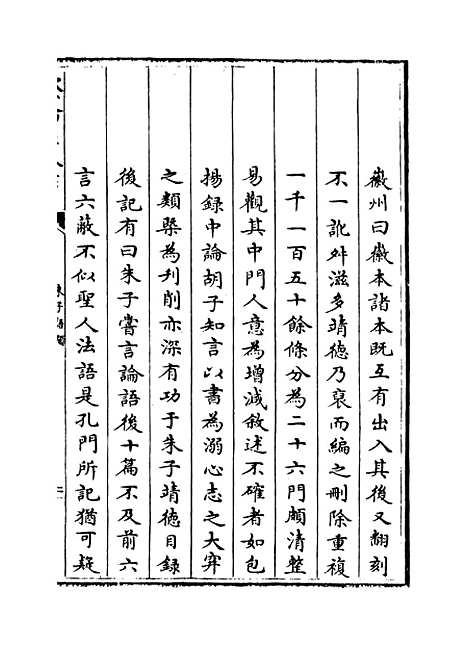 徽州曰徽本諸本既互有出入其後又翻刻
不一訛舛滋多靖德乃裒而編之刪除重複
一千一百五十餘條分為二十六門頗清整
易觀其中門人意為增減敘述不確者如包
揚録中論胡子知言以書為溺心志之大穽
之類槩為刋削亦深有功于朱子靖徳目録
後記有曰朱子嘗言論語後十篇不及前六
言六蔽不似聖人法語是孔門所記猶可疑
朱子語類